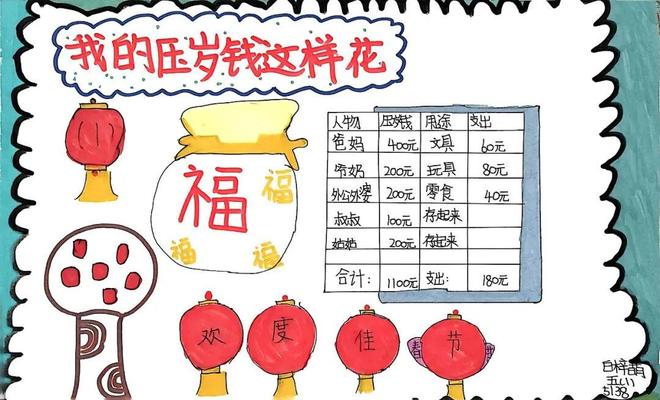 我的压岁钱这样花
福
福
福
福
人物 压岁钱 用途 支出
爸妈 400元 文具 60元
爷奶 200元 玩具 80元
外公外婆 200元 零食 40元
叔叔 100元 存起来
姑姑 200元 存起来
合计: 1100元 支出: 180元
欢度佳节
春
白梓萌
五(八)
5138